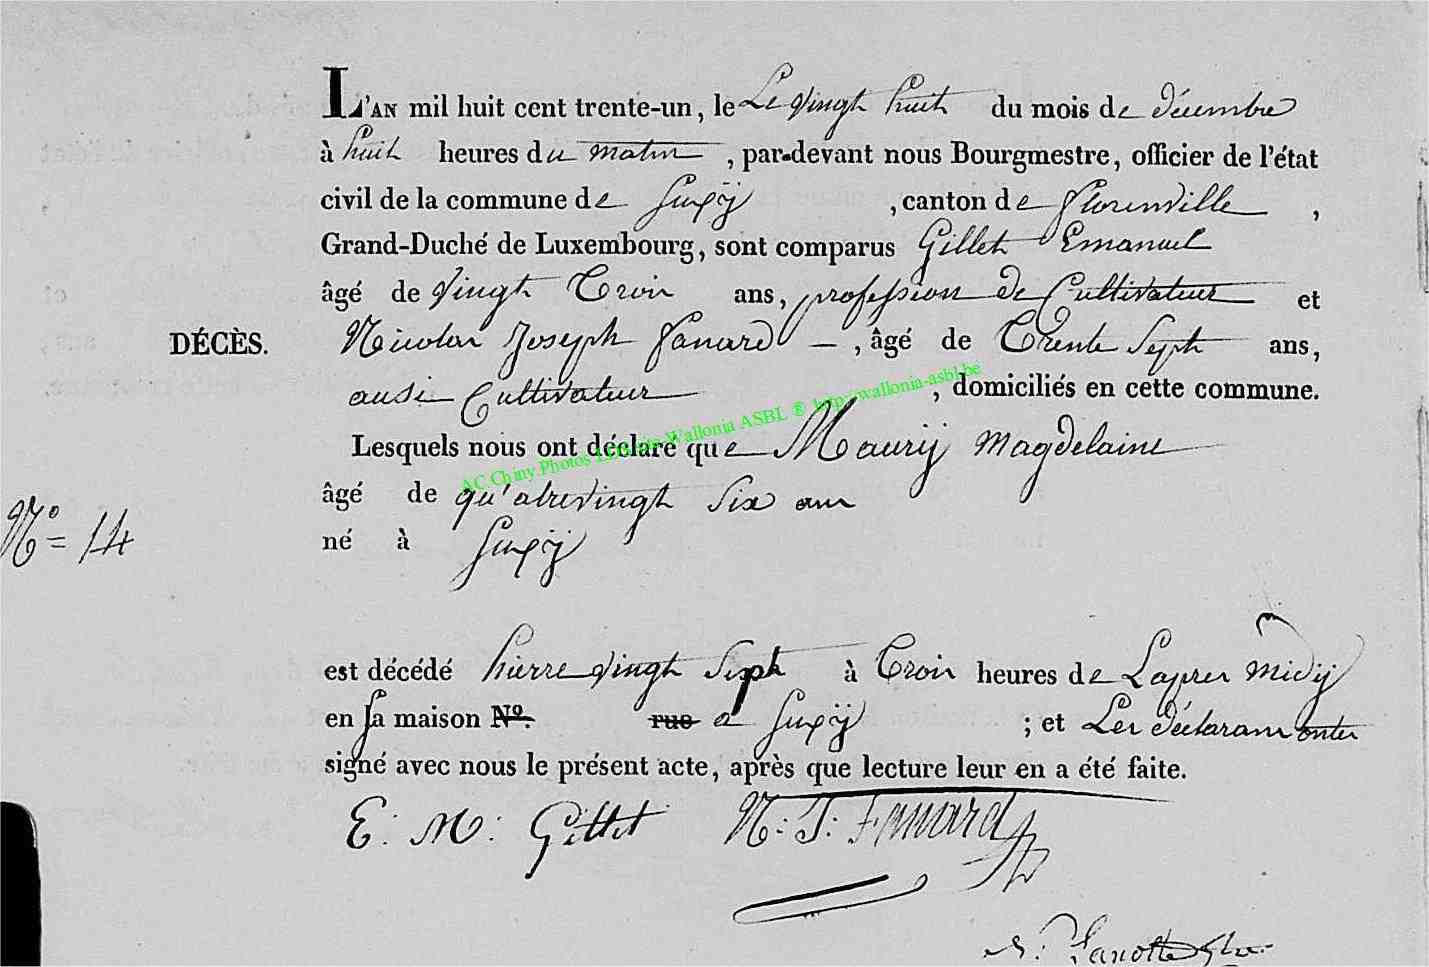 L'AN mil huit cent trente-un, le Le vingt huit du mois de décembre
à huit heures du matin, par-devant nous Bourgmestre, officier de l'état
civil de la commune de Suxÿ, canton de Florenville,
Grand-Duché de Luxembourg, sont comparus Gillet Emanuel
âgé de vingt Trois ans, profession de Cultivateur et
DÉCÈS. Nicolas Joseph Fanard —, âgé de Trente Sept ans,
ausi Cultivateur, domiciliés en cette commune.
AC Chiny Photos Wallonia ASBL ® http://wallonia-asbl.be
Lesquels nous ont déclaré que Maurij Magdelaine
âgé de qu'atrevingt Six ans
N° = 14 né à Suxÿ
est décédé hierre vingt Sept à Trois heures de Lapres midij
en sa maison N°. rue a Suxÿ ; et Les déclarans onter
signé avec nous le présent acte, après que lecture leur en a été faite.
E: M: Gillet N: J: Fanard